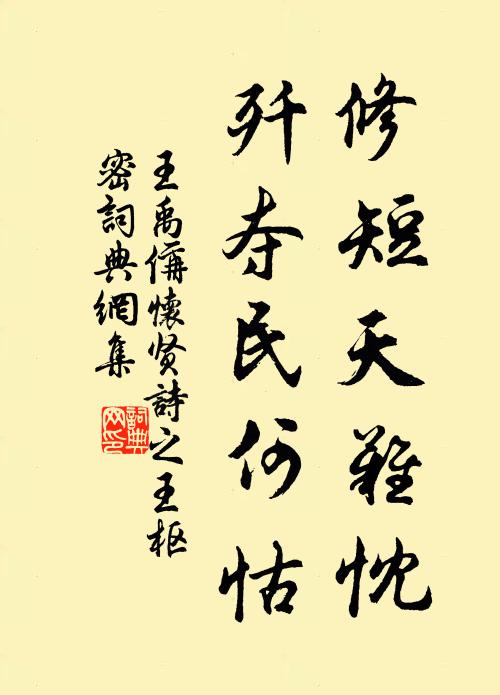 修短天難忱
歼夺民何怙
王禹偁懷贤詩之王枢
密詞典網集
詞典网印